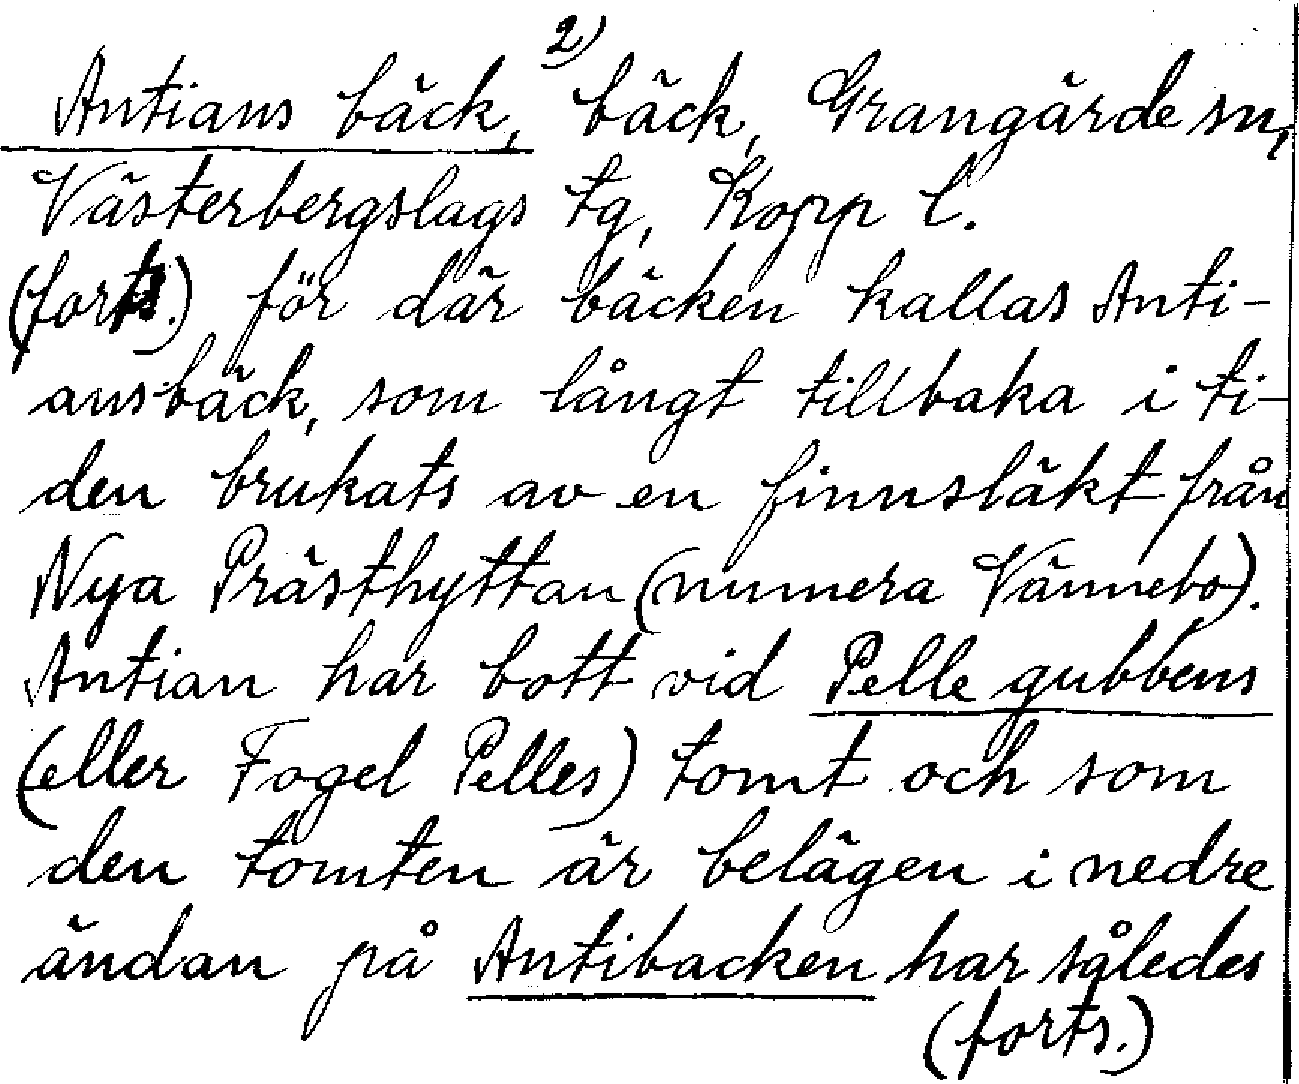 2)
Antians bäck, bäck, Grangärde sn,
Västerbergslags tg, Kopp l.
(forts.) för där bäcken kallas Anti-
ansbäck, som långt tillbaka i ti-
den brukats av en finnsläkt från
Nya Prästhyttan (numera Vännebo).
Antian har bott vid Pelle gubbens
(eller Fogel Pelles) tomt och som
den tomten är belägen i nedre
ändan på Antibacken har således
(forts.)